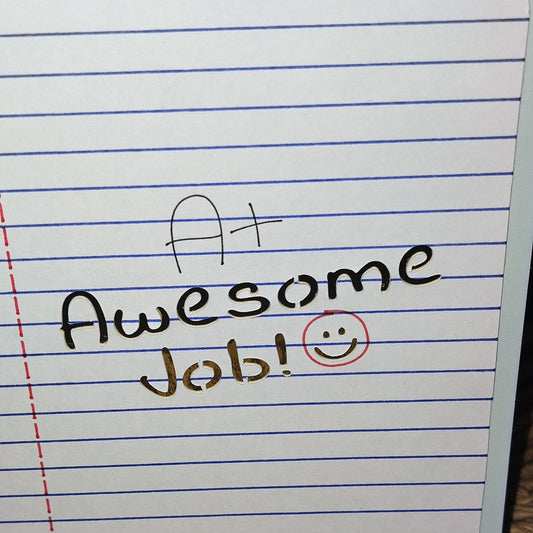 A+
Awesome
Job!